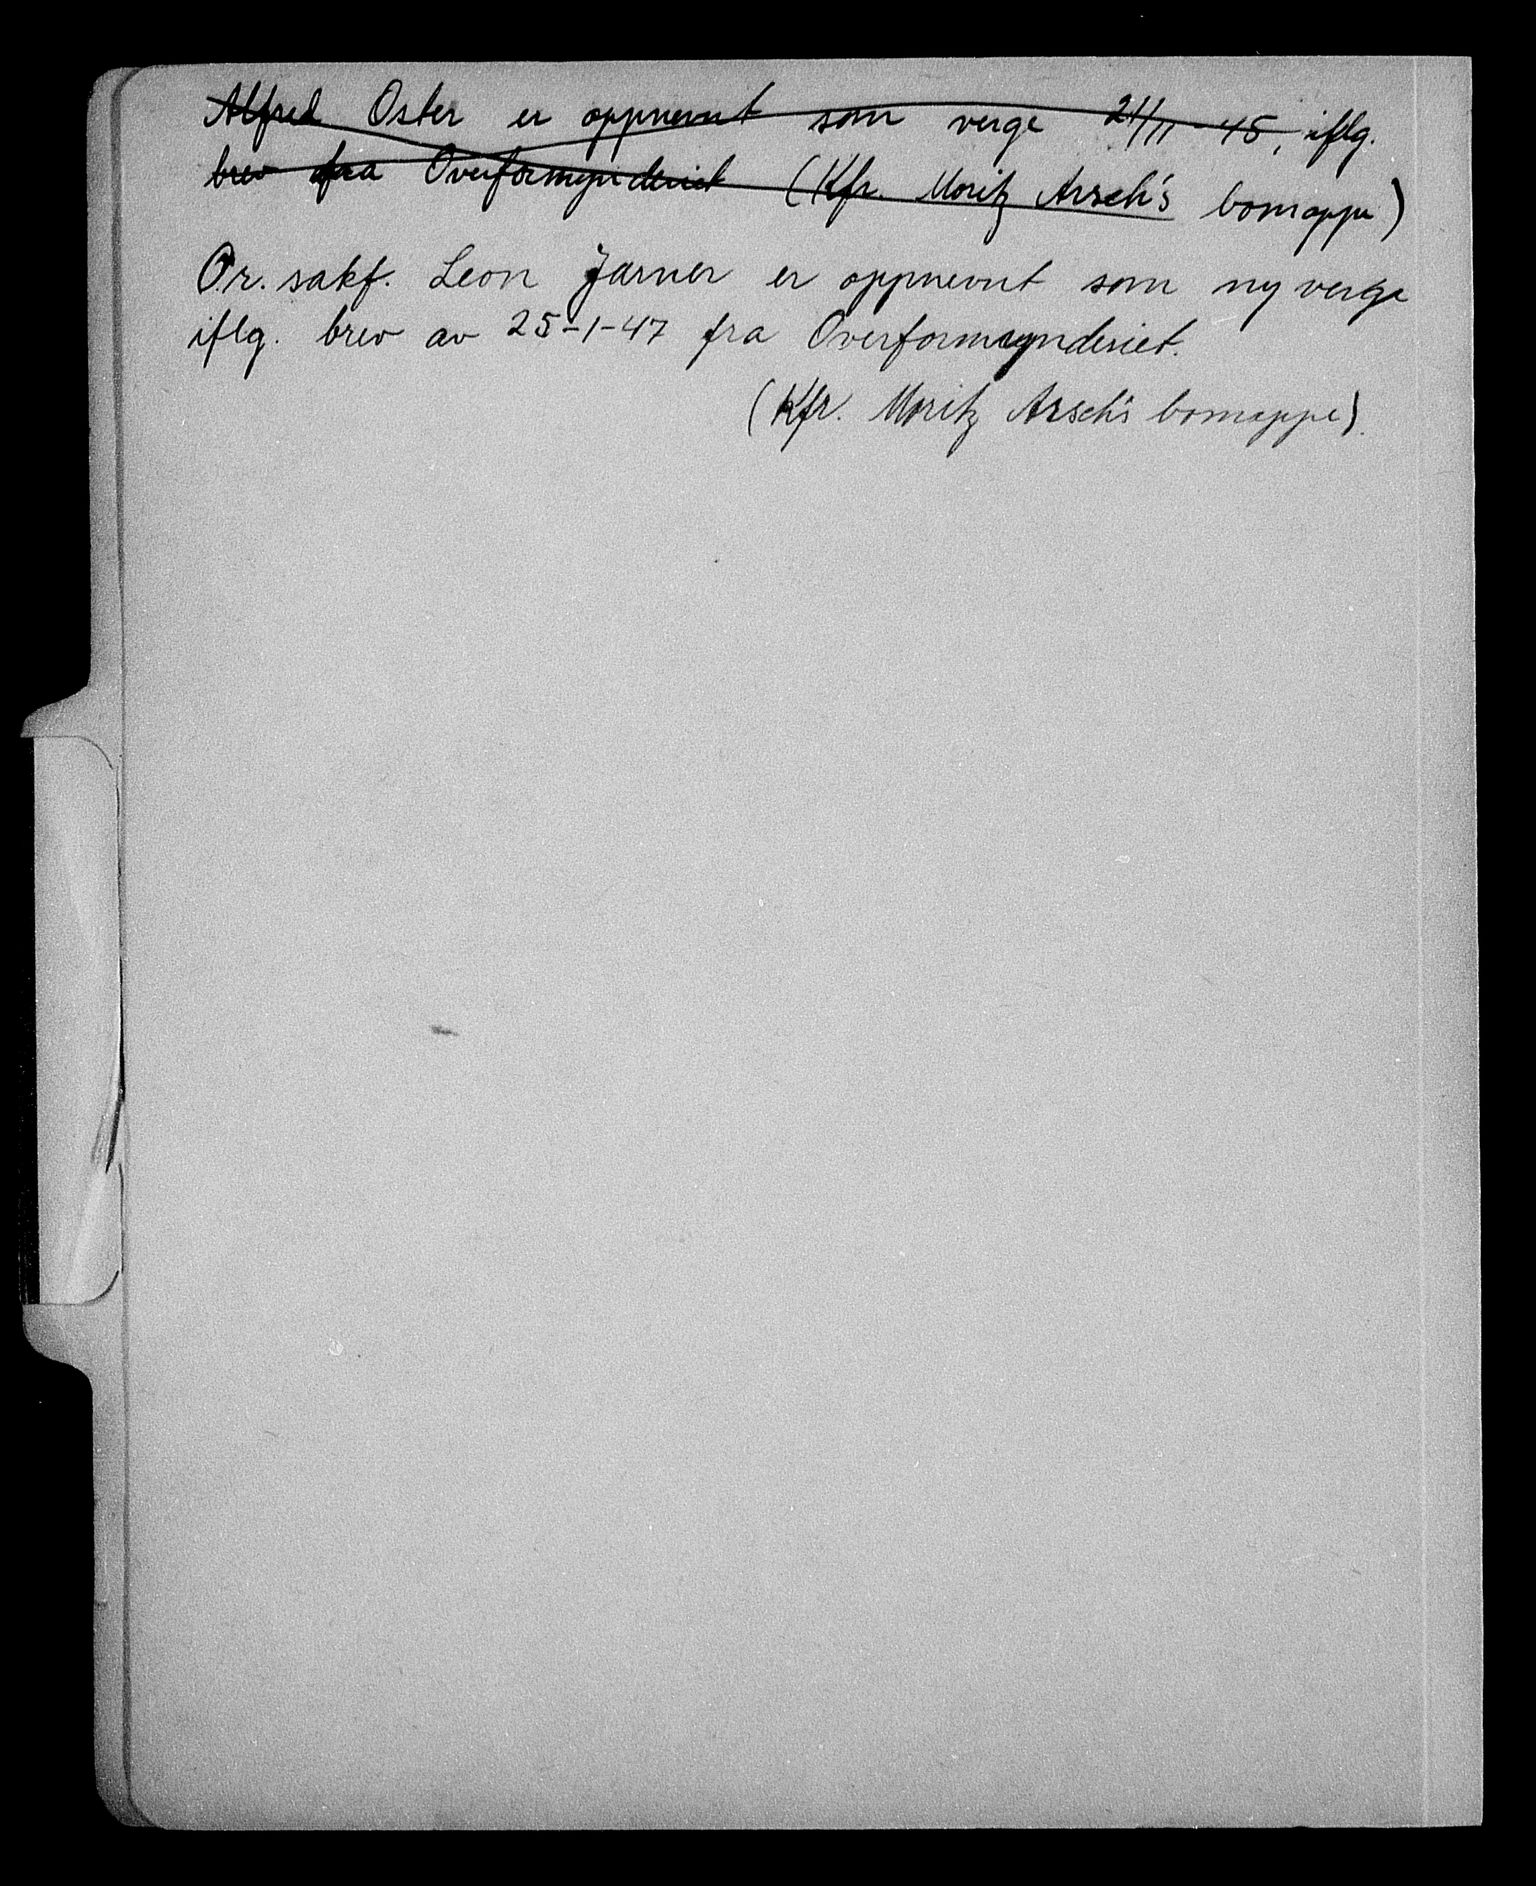 Alfred Oster er oppnevnt som verge 21/11-45, iflg.
brev fra Overformynderiet (Kfr. Moritz Arsch's bomappe)
O.r. sakf. Leon Jarner er oppnevnt som ny verge
iflg. brev av 25-1-47 fra Overformynderiet.
(Kfr. Moritz Arsch's bomappe).